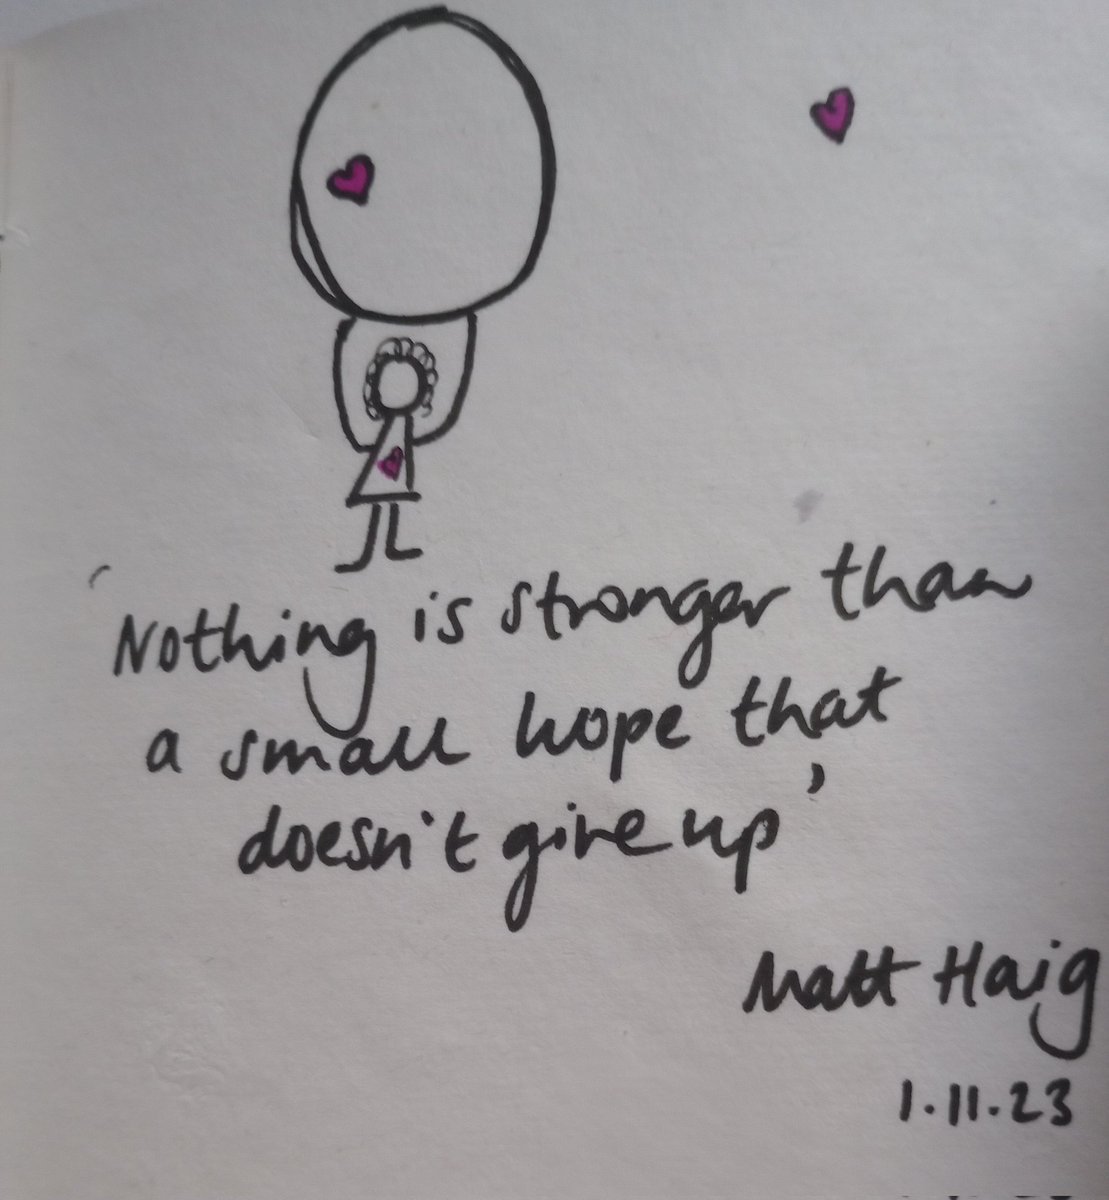 'Nothing is stronger than
a small hope that
doesn't give up'
Matt Haig
1.11.23